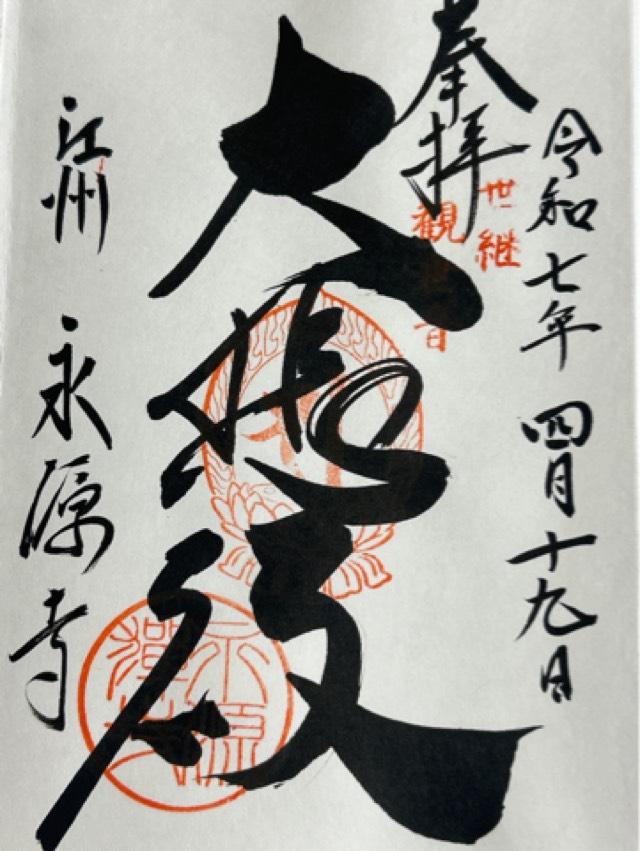 令和七年 四月十九日
奉拝
世継
観音
大悲殿
江州 永源寺